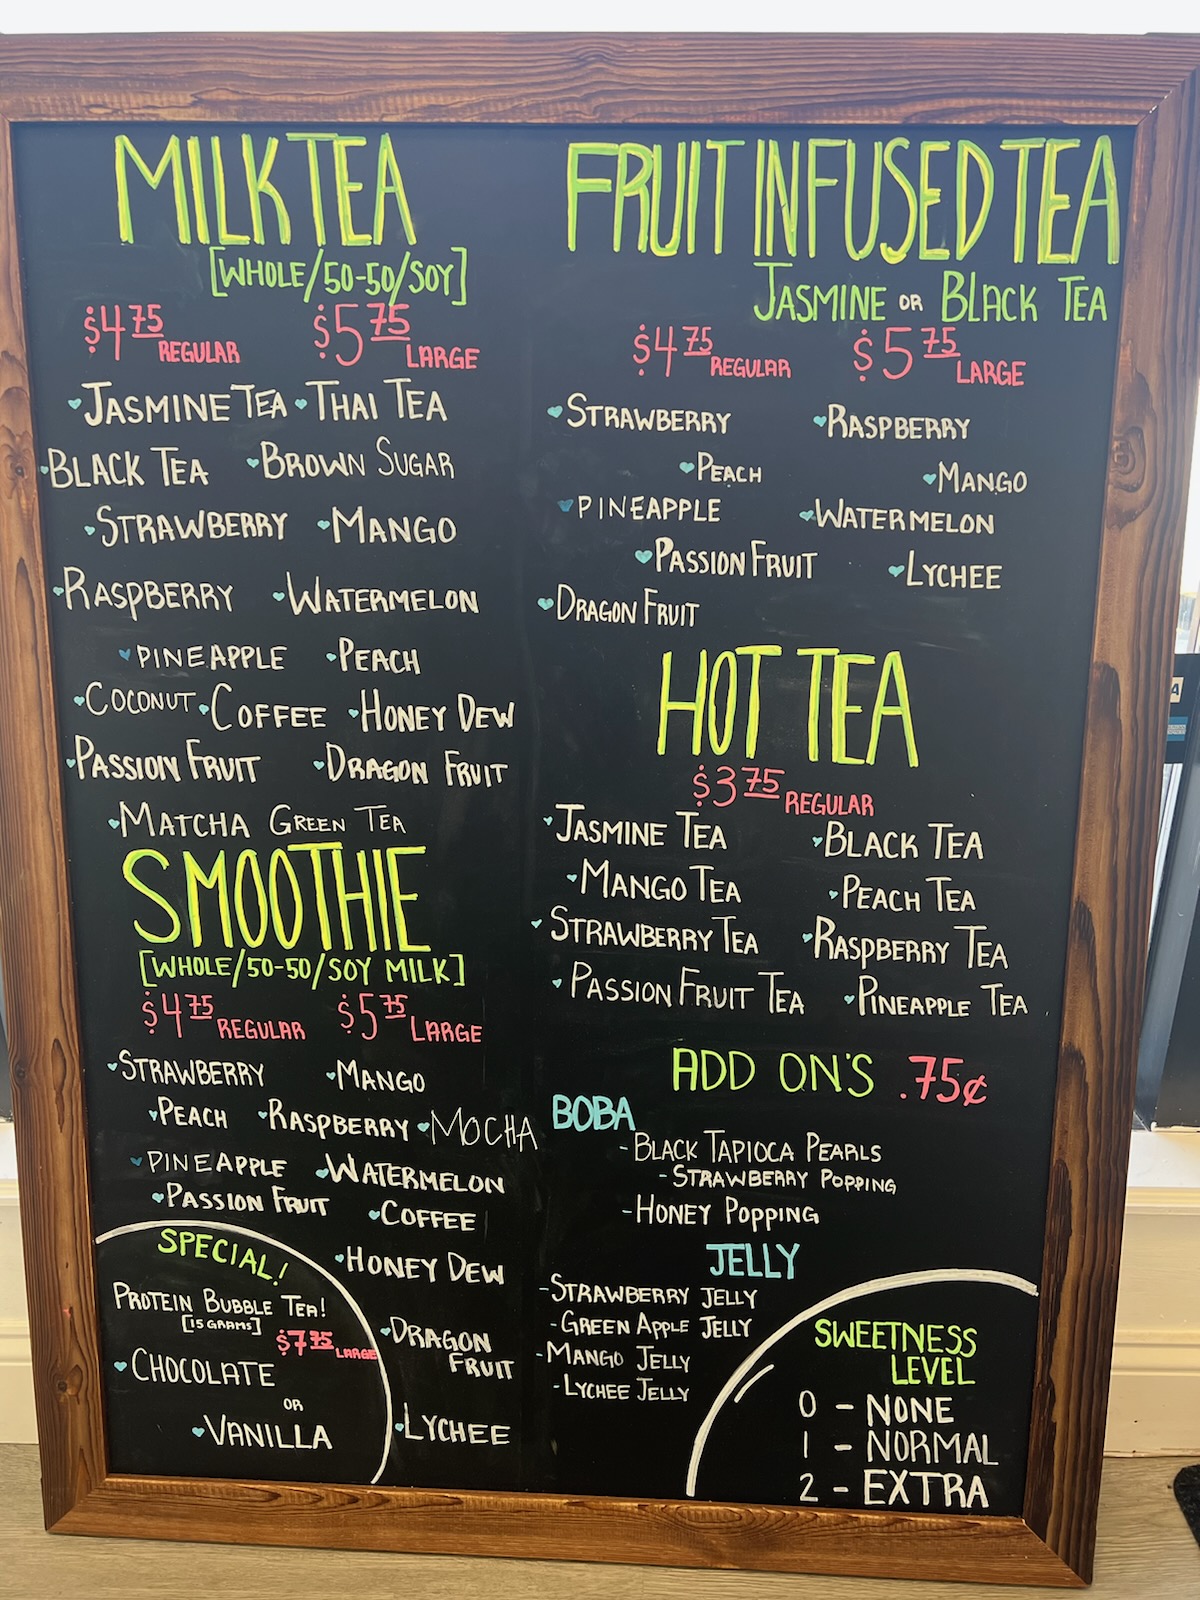 MILK TEA
[WHOLE/50-50/SOY]
$4.75 REGULAR $5.75 LARGE
JASMINE TEA THAI TEA
BLACK TEA BROWN SUGAR
STRAWBERRY MANGO
RASPBERRY WATERMELON
PINEAPPLE PEACH
COCONUT COFFEE HONEY DEW
PASSION FRUIT DRAGON FRUIT
MATCHA GREEN TEA
SMOOTHIE
[WHOLE/50-50/SOY MILK]
$4.75 REGULAR $5.75 LARGE
STRAWBERRY MANGO
PEACH RASPBERRY MOCHA
PINEAPPLE WATERMELON
PASSION FRUIT COFFEE
HONEY DEW
DRAGON
FRUIT
LYCHEE
SPECIAL!
PROTEIN BUBBLE TEA!
[15 GRAMS]
$7.75 LARGE
CHOCOLATE
OR
VANILLA
FRUIT INFUSED TEA
JASMINE OR BLACK TEA
$4.75 REGULAR $5.75 LARGE
STRAWBERRY RASPBERRY
PEACH MANGO
PINEAPPLE WATERMELON
PASSION FRUIT LYCHEE
DRAGON FRUIT
HOT TEA
$3.75 REGULAR
JASMINE TEA BLACK TEA
MANGO TEA PEACH TEA
STRAWBERRY TEA RASPBERRY TEA
PASSION FRUIT TEA PINEAPPLE TEA
ADD ON'S .75¢
BOBA
-BLACK TAPIOCA PEARLS
-STRAWBERRY POPPING
-HONEY POPPING
JELLY
-STRAWBERRY JELLY
-GREEN APPLE JELLY
-MANGO JELLY
-LYCHEE JELLY
SWEETNESS
LEVEL
0 - NONE
1 - NORMAL
2 - EXTRA